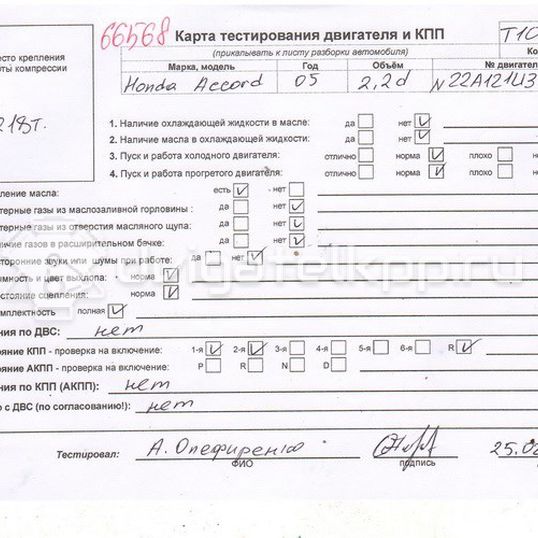 66568 Карта тестирования двигателя и КПП
(прикалывать к листу разборки автомобиля)
место крепления
ты компрессии
218т.
Марка, модель Год Объём № двигател
Honda Accord 05 2,2d N22A121U3
1. Наличие охлаждающей жидкости в масле: да нет V
2. Наличие масла в охлаждающей жидкости: да нет
3. Пуск и работа холодного двигателя: отлично норма V плохо
4. Пуск и работа прогретого двигателя: отлично норма V плохо
ление масла: есть V нет
терные газы из маслозаливной горловины : да нет V
терные газы из отверстия масляного щупа: да нет V
личие газов в расширительном бачке: да нет V
сторонние звуки или шумы при работе: да нет V
ымность и цвет выхлопа: норма V
стояние сцепления: норма V
мплектность полная V
ния по ДВС: нет
яние КПП - проверка на включение: 1-я V 2-я V 3-я 4-я 5-я 6-я R V
яние АКПП - проверка на включение: P R N D
ния по КПП (АКПП): нет
о с ДВС (по согласованию!): нет
Тестировал: А. 25.0
ФИО подпись